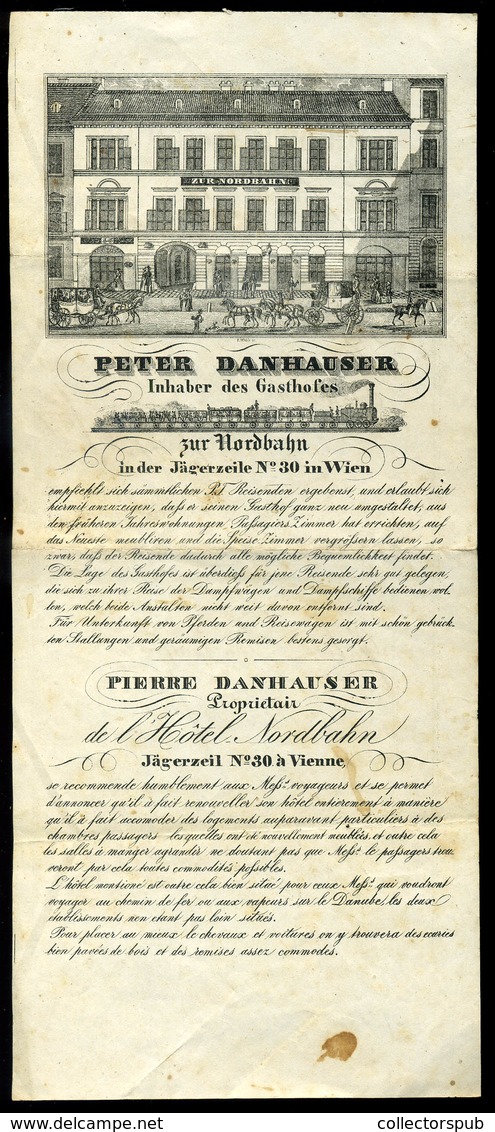 ZUR NORDBAHN
PETER DANHAUSER
Inhaber des Gasthofes
zur Nordbahn
in der Jägerzeile No 30 in Wien
empfiehlt sich sämmtlichen P.T. Reisenden ergebenst, und erlaubt sich
hiermit anzuzeigen, daß er seinen Gasthof ganz neu umgestaltet; aus
den früheren Jahreswohnungen, Passagiers Zimmer hat errichten, auf
das Neueste meubliren und die Speise Zimmer vergrößern lassen, so
zwar, daß der Reisende dadurch alle mögliche Bequemlichkeit findet.
Die Lage des Gasthofes ist überdieß für jene Reisende sehr gut gelegen,
die sich zu ihrer Reise der Dampfwägen und Dampfschiffe bedienen wol-
len, welch beide Anstalten nicht weit davon entfernt sind.
Für Unterkunft von Pferden und Reisewägen ist mit schön gebrück-
ten Stallungen und geräumigen Remisen bestens gesorgt.
PIERRE DANHAUSER
Proprietair
de l'Hôtel Nordbahn
Jägerzeil No 30 à Vienne
se recommende humblement aux Meßrs voyageurs et se permet
d'annoncer qu'il à fait renouveller son hôtel entièrement à manière
qu'il à fait accomoder des logements auparavant particuliers à des
chambres passagers lesquelles ont été nouvellement meublées, et outre cela
les salles à manger agrandir ne doutant pas que Meßrs le passagers trou-
veront par cela toutes commoditès poßibles.
L'hôtel montionè est outre cela bien situé pour ceux Meßrs qui voudront
voyager au chemin de fer ou aux vapeurs sur le Danube, les deux
établissements non etant pas loin situés.
Pour placer au mieux le chevaux et voitures on y trouvera des ecuries
bien pavées de bois et des remises assez commodes.
collectorspub